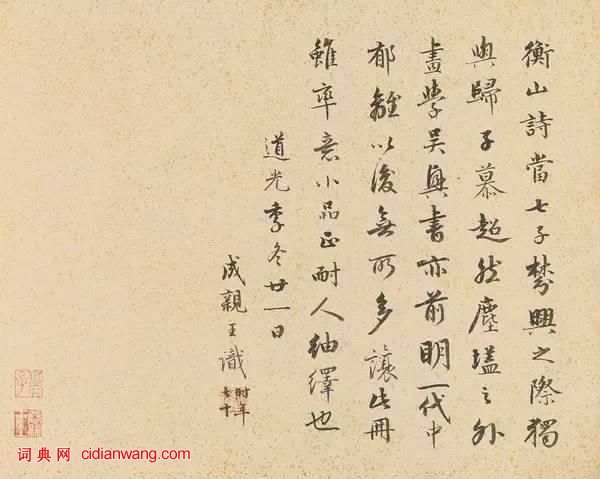 衡山詩當七子棼興之際獨
與歸子慕超然塵壒之外
畫學吳興書亦前明一代中
郁離以後無所多讓此冊
雖率意小品正耐人紬繹也
道光季冬廿一日
成親王識
时年
七十
词典网 cidianwang.com